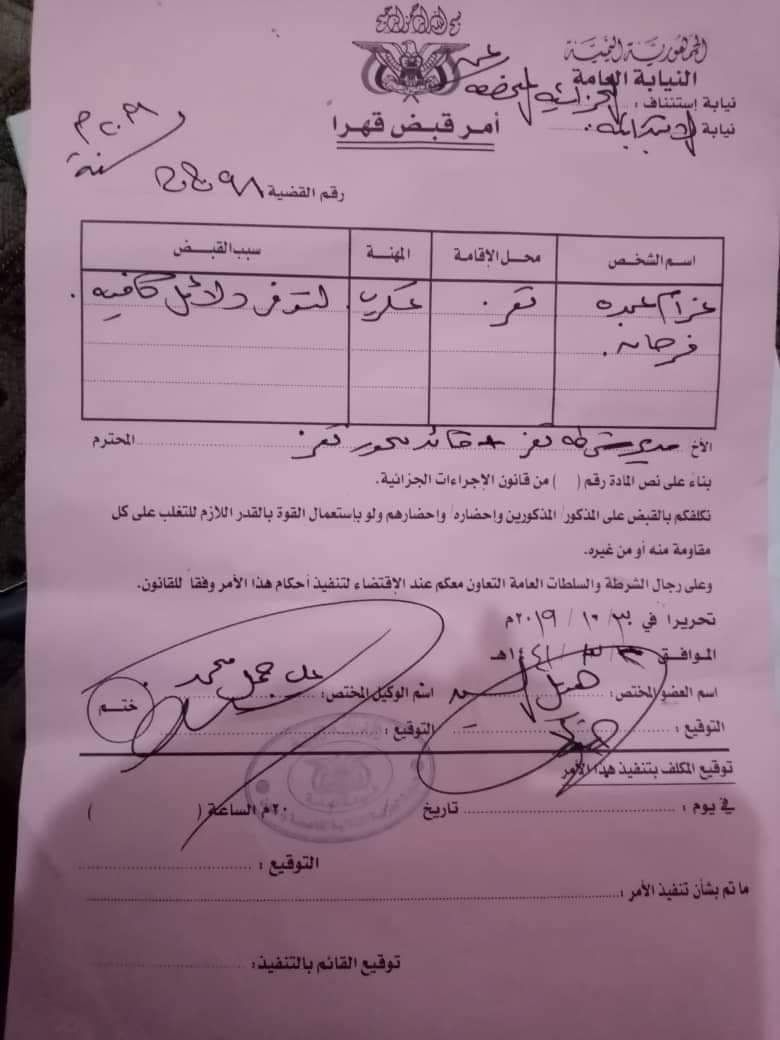 بسم الله الرحمن الرحيم
الجمهورية اليمنية
النيابة العامة
نيابة إستئناف : الجزائية المتخصصة عدن
نيابة الابتدائية
أمر قبض قهرا
سنة م
رقم القضية
اسم الشخص محل الإقامة المهنة سبب القبض
عزام عبده تعز. عسكري. لتوفر دلائل كافيه.
فرحان.
الأخ مدير شرطه تعز + قائد محور تعز المحترم
بناء على نص المادة رقم ( ) من قانون الإجراءات الجزائية.
نكلفكم بالقبض على المذكور/ المذكورين وإحضاره/ وإحضارهم ولو بإستعمال القوة بالقدر اللازم للتغلب على كل
مقاومة منه أو من غيره.
وعلى رجال الشرطة والسلطات العامة التعاون معكم عند الإقتضاء لتنفيذ أحكام هذا الأمر وفقاً للقانون.
تحريرا في ٣٠ / ١٠ / ٢٠١٩م
الموافق / / ١٤٤١هـ
اسم العضو المختص: اسم الوكيل المختص: علي جمل محمد
ختم
التوقيع : التوقيع :
توقيع المكلف بتنفيذ هذا الأمر
في يوم : تاريخ ٢٠م الساعة ( )
التوقيع :
ما تم بشأن تنفيذ الأمر :
توقيع القائم بالتنفيذ: